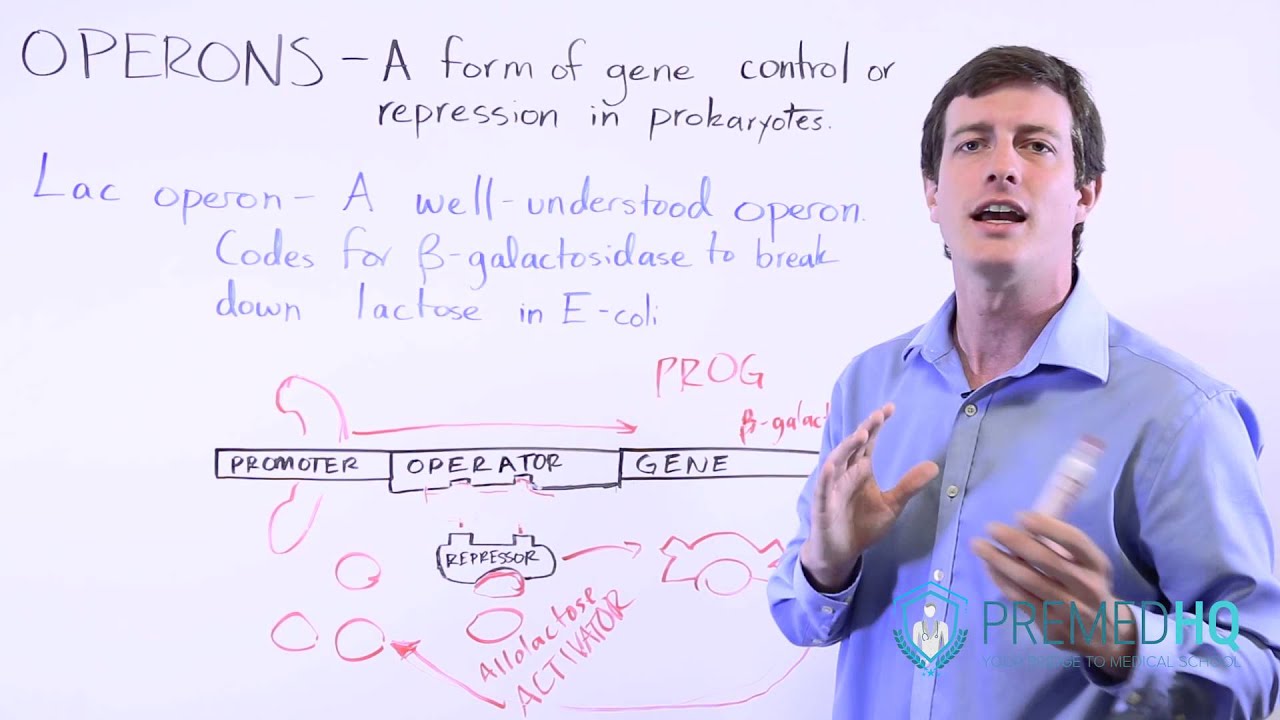 OPERONS - A form of gene control or
repression in prokaryotes.
Lac operon - A well-understood operon.
Codes for β-galactosidase to break
down lactose in E-coli
PROG
β-galact
PROMOTER OPERATOR GENE
REPRESSOR
Allolactose
ACTIVATOR
PREMEDHQ
YOUR BRIDGE TO MEDICAL SCHOOL